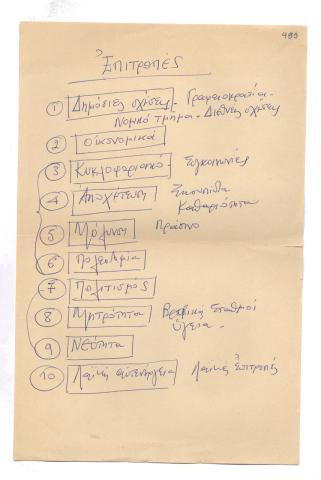 490
Ἐπιτροπές
1 Δημόσιες σχέσεις - Γραφειοκρατία -
Νομικό τμήμα - Διεθνείς σχέσεις
2 Οικονομικά
3 Κυκλοφοριακό - Συγκοινωνίες
4 Αποχέτευση Σκουπίδια
Καθαριότητα
5 Μόλυνση Πράσινο
6 Πολεοδομία
7 Πολιτισμός
8 Μητρότητα Βρεφικοί Σταθμοί
Ὑγεία -
9 Νεότητα
10 Λαϊκή αυτενέργεια Λαϊκές Ἐπιτροπές